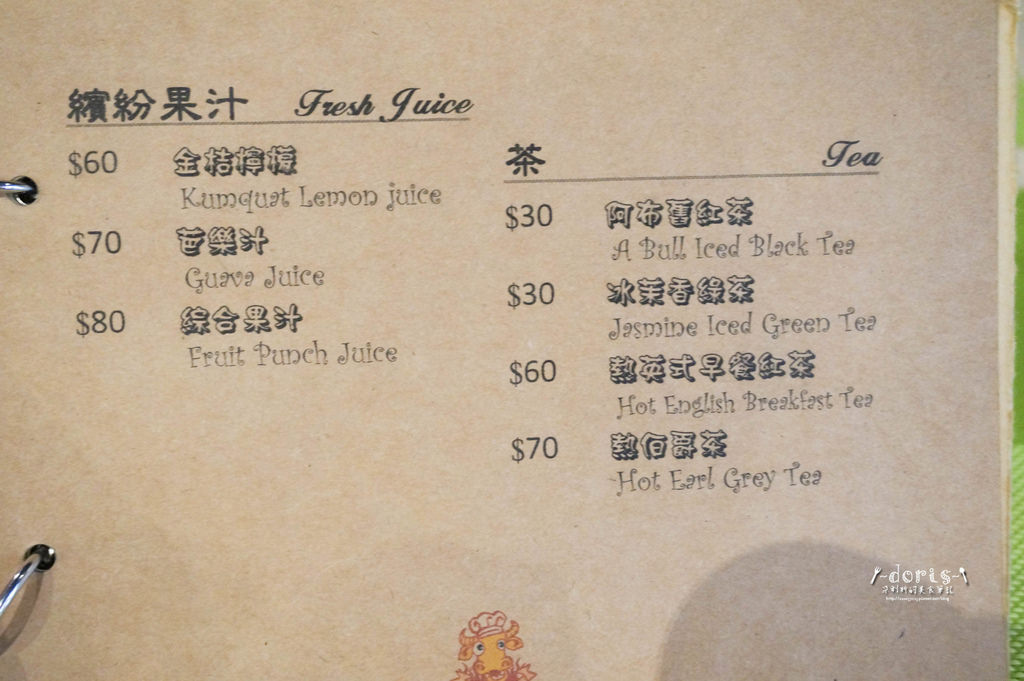 繽紛果汁 Fresh Juice
$60 金桔檸檬
Kumquat Lemon juice
$70 芭樂汁
Guava Juice
$80 綜合果汁
Fruit Punch Juice
茶 Tea
$30 阿布舊紅茶
A Bull Iced Black Tea
$30 冰茉香綠茶
Jasmine Iced Green Tea
$60 熱英式早餐紅茶
Hot English Breakfast Tea
$70 熱伯爵茶
Hot Earl Grey Tea
-doris-